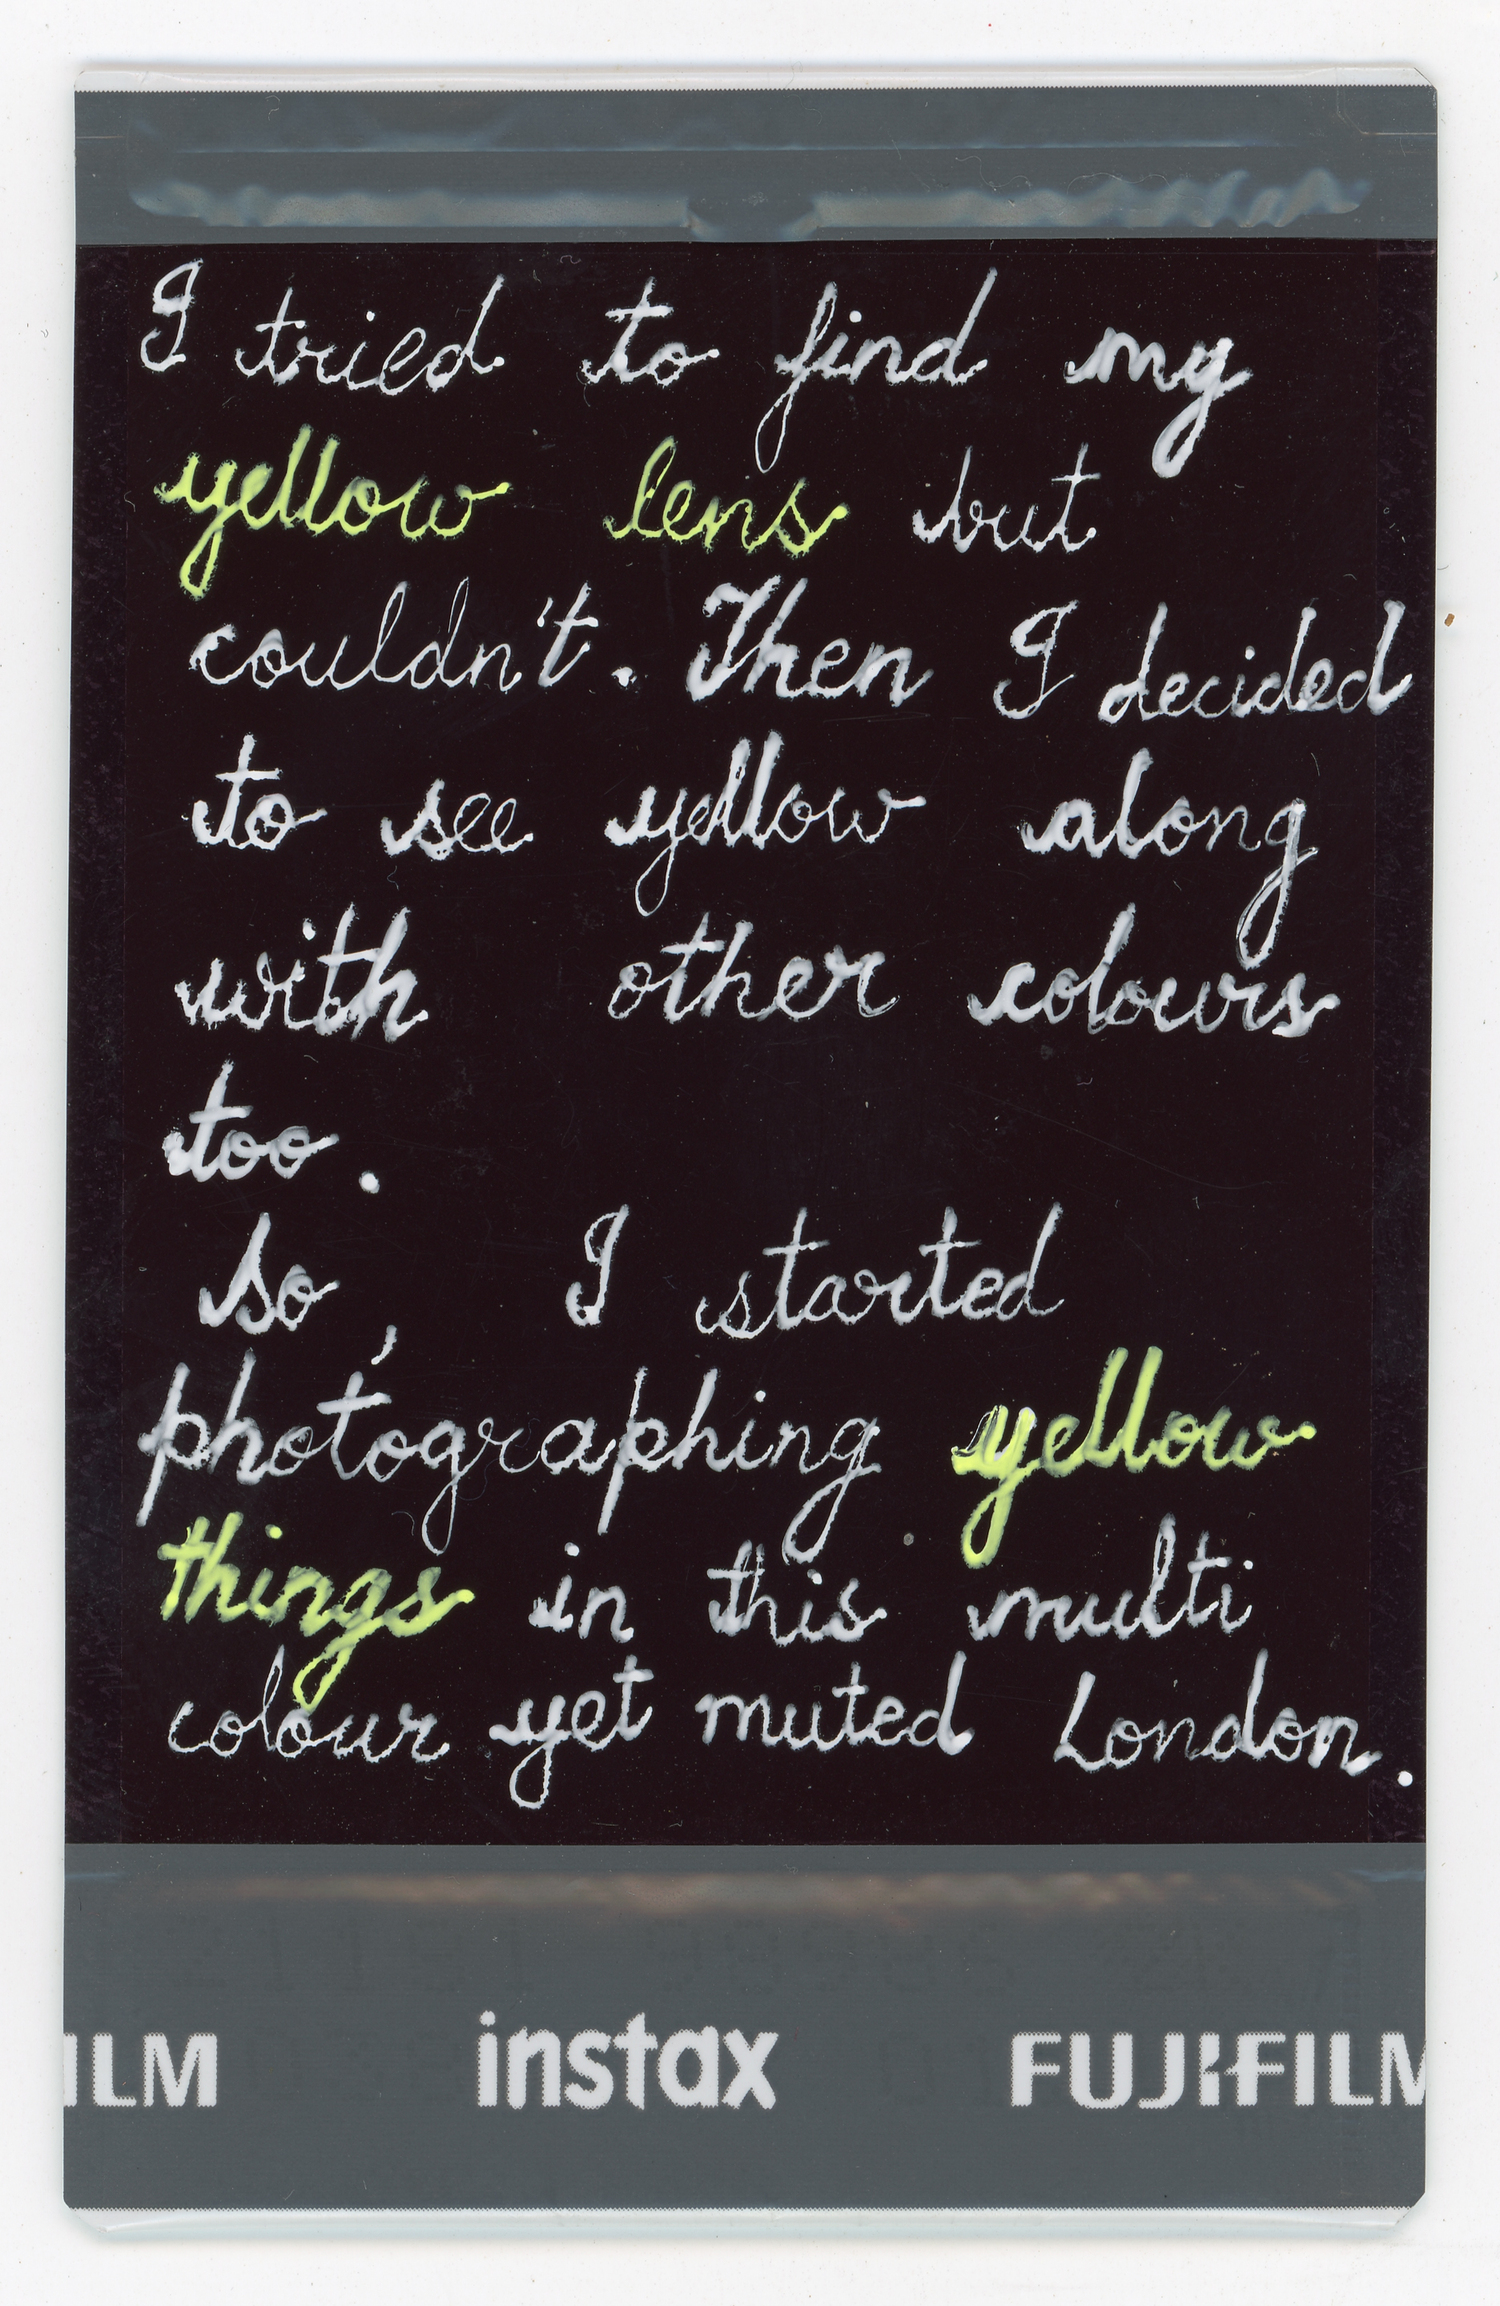 I tried to find my
yellow lens but
couldn't. Then I decided
to see yellow along
with other colours
too.
So, I started
photographing yellow
things in this multi
colour yet muted London.
ILM instax FUJIFILM